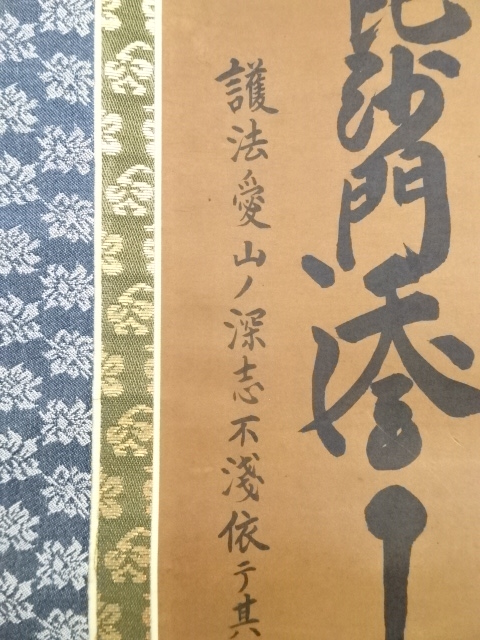 毘沙門
護法愛山ノ深志不淺依テ其